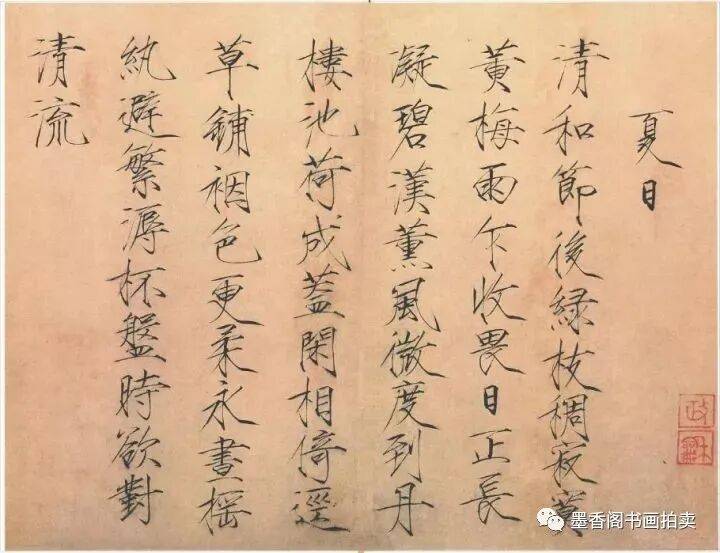 夏日
清和節後緑枝稠寂寞
黃梅雨乍收畏日正長
凝碧漢薰風微度到丹
樓池荷成蓋閑相倚逕
草鋪裀色更柔永晝摇
紈避繁溽杯盤時欲對
清流
政龢
墨香阁书画拍卖